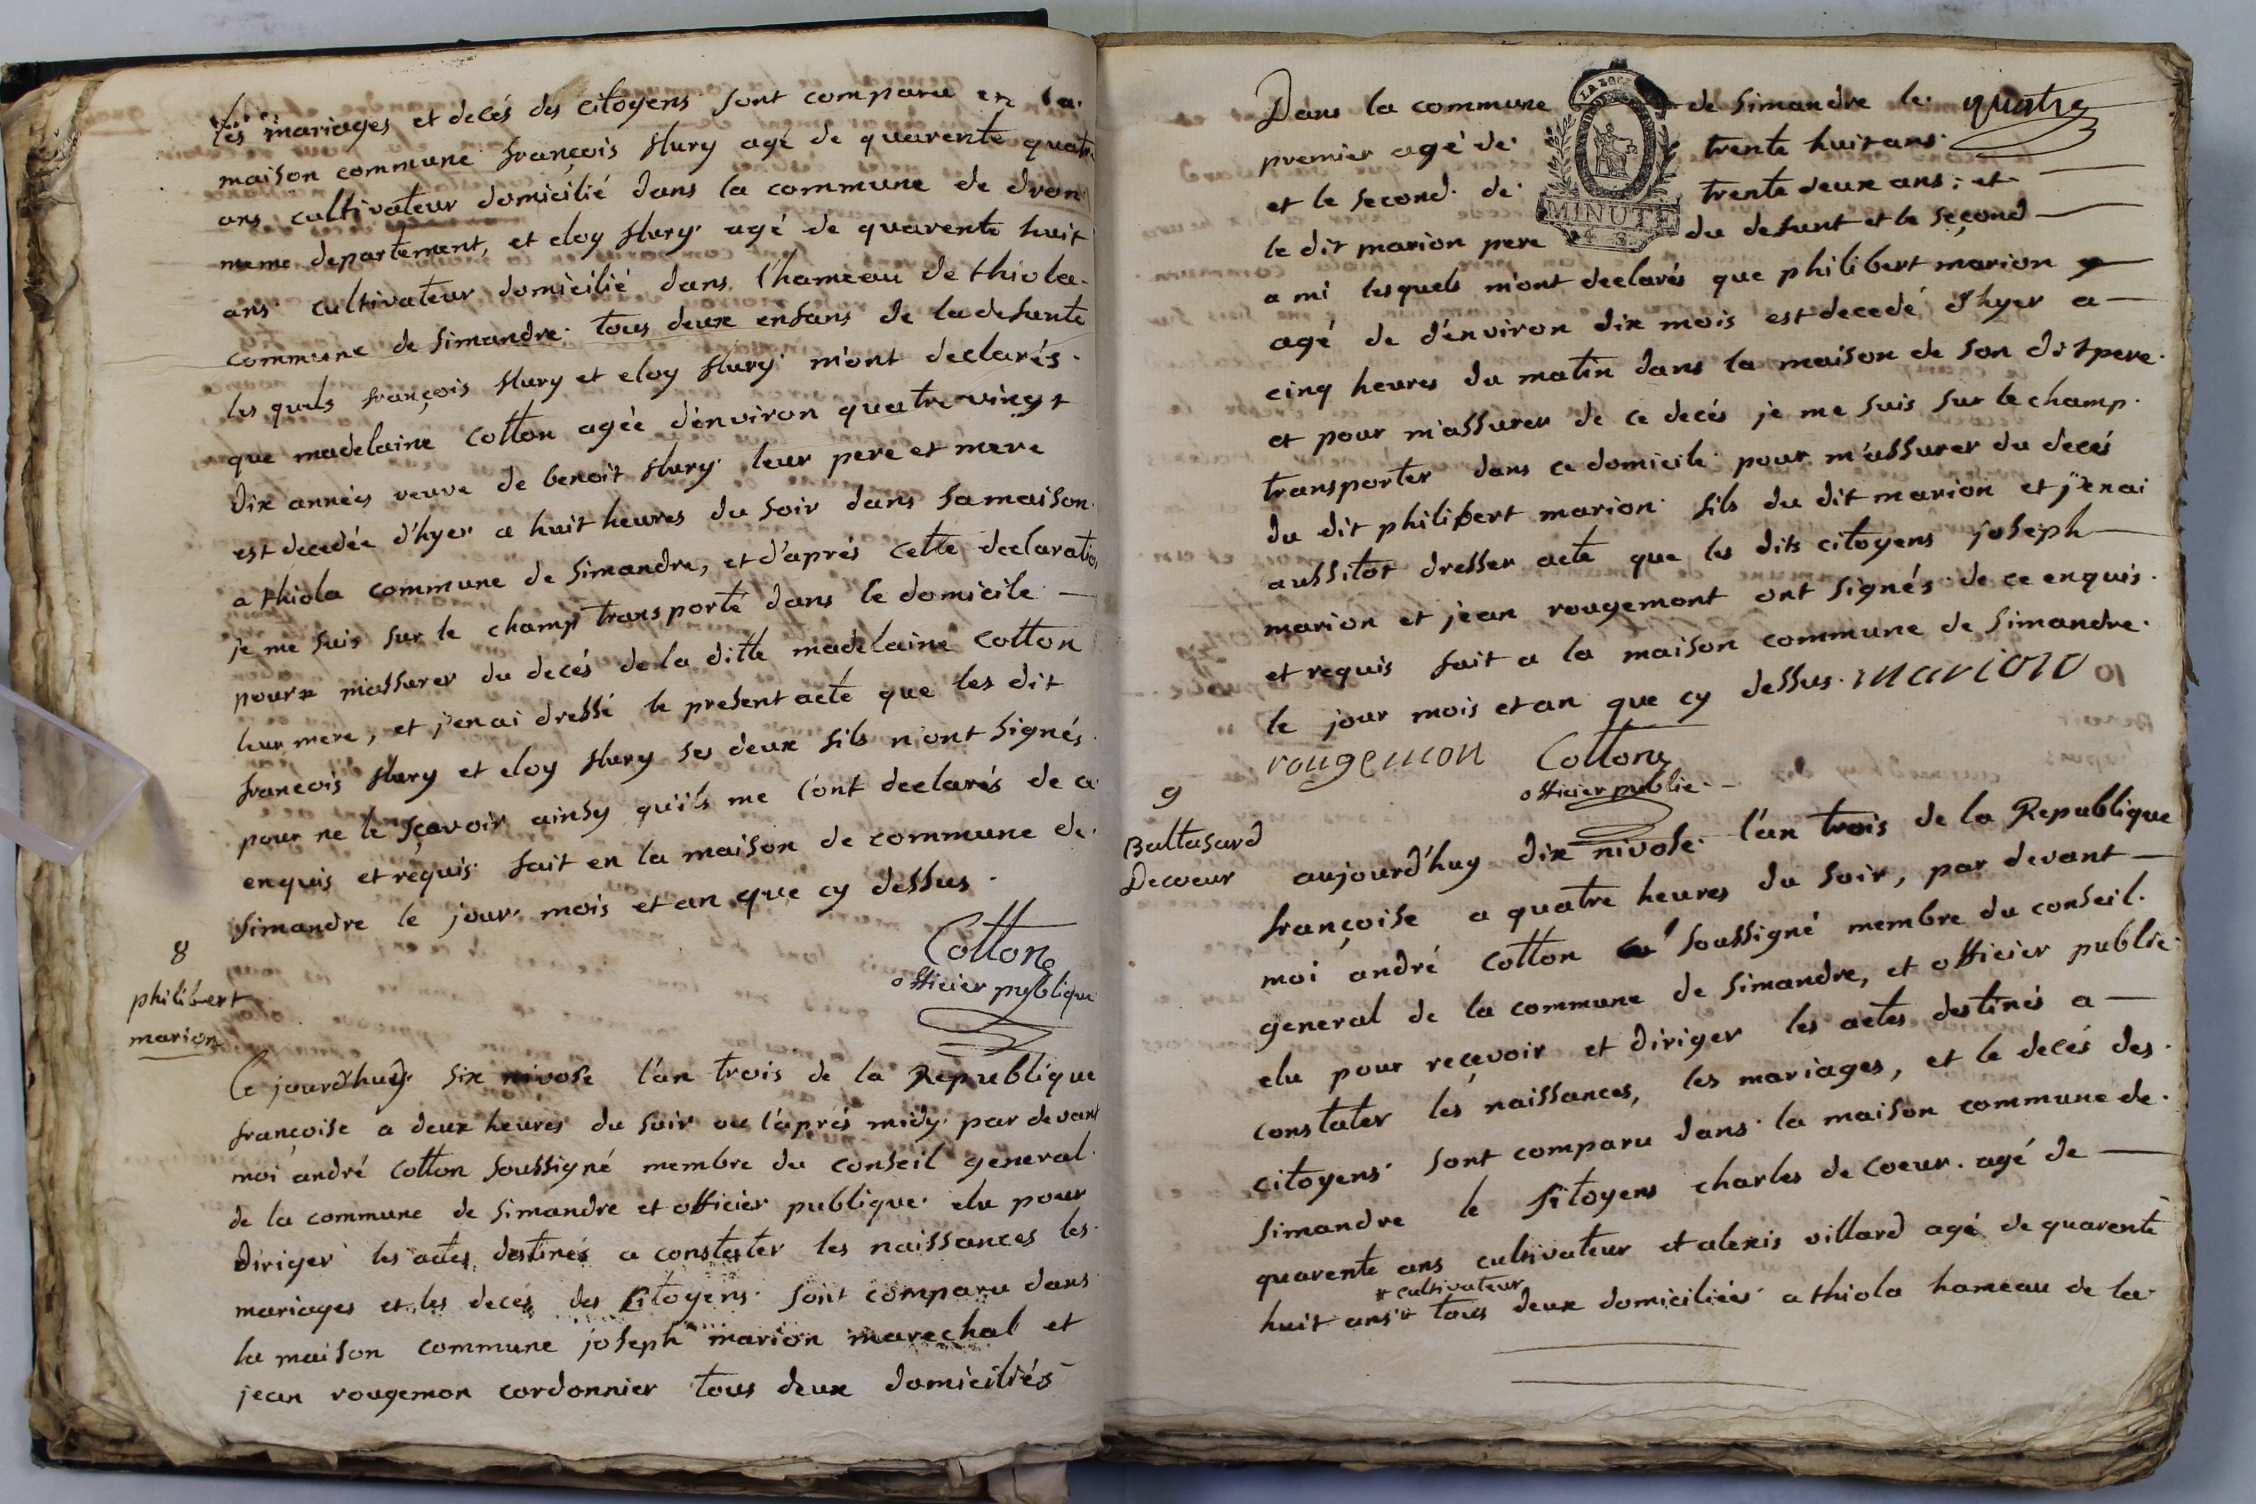 les mariages et decés des citoyens sont comparu en la
maison commune françois flury agé de quarente quatre
ans cultivateur domicilié dans la commune de dron
meme departement, et eloy flury agé de quarente huit
ans cultivateur domicilié dans l'hameau de thiola
commune de simandre tous deux enfans de la defunte
les quels françois flury et eloy flury m'ont declarés
que madelaine Cotton agée d'environ quatre vingt
dix années veuve de benoit flury leur pere et mere
est decedée d'hyer a huit heures du soir dans sa maison
a thiola commune de simandre, et d'aprés cette declaration
je me suis sur le champ transporté dans le domicile
pour m'assurer du decés de la ditte madelaine Cotton
leur mere, et j'en ai dressé le present acte que les dit
francois flury et eloy flury ses deux fils n'ont signés
pour ne le sçavoir ainsy qu'ils me l'ont declarés de ce
enquis et requis fait en la maison de commune de
simandre le jour mois et an que cy dessus
Cotton
officier publique
8
philibert
marion
Ce jourd'huy six nivose l'an trois de la Republique
françoise a deux heures du soir ou l'aprés midy par devant
moi andré Cotton soussigné membre du conseil general
de la commune de simandre et officier publique elu pour
diriger les actes destinés a constester les naissances les
mariages et les decés des Citoyens sont comparu dans
la maison commune joseph marion marechal et
jean rougemon cordonnier tous deux domiciliés
Dans la commune de simandre le quatre
premier agé de trente huit ans
et le second de trente deux ans, et
le dit marion pere du defunt et le seçond
MINUTE
a mi lesquels m'ont declarés que philibert marion
agé de d'environ dix mois est decedé d'hyer a
cinq heures du matin dans la maison de son dit pere
et pour m'assurer de ce decés je me suis sur le champ
transporter dans ce domicile pour m'assurer du decés
du dit philibert marion fils du dit marion et j'en ai
aussitot dresser acte que les dits citoyens joseph
marion et jean rougemont ont signés de ce enquis
et requis fait a la maison commune de simandre
le jour mois et an que cy dessus marion
rougemon Cotton
officier public
9
Baltasard
Decoeur
aujourd'huy dix nivose l'an trois de la Republique
françoise a quatre heures du soir, par devant
moi andré Cotton soussigné membre du conseil
general de la commune de simandre, et officier public
elu pour reçevoir et diriger les actes destinés a
constater les naissances, les mariages, et le decés des
citoyens sont comparu dans la maison commune de
simandre le Sitoyens charles de coeur agé de
quarente ans cultivateur et alexis villard agé de quarente
# cultivateur
huit ans # tous deux domiciliés a thiola hameau de la